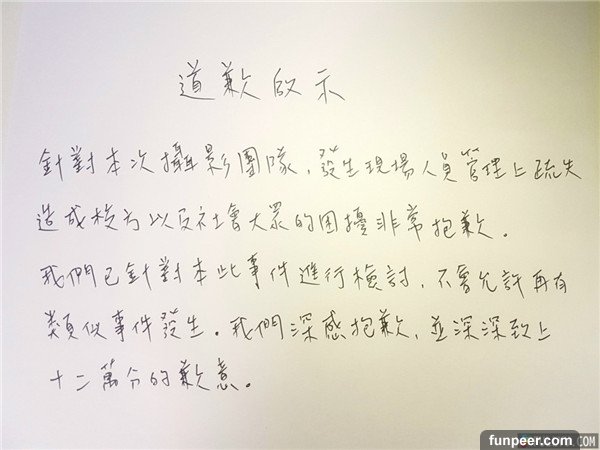 道歉啟示
針對本次攝影團隊，發生現場人員管理上疏失
造成校方以及社會大眾的困擾非常抱歉。
我們已針對本此事件進行檢討，不會允許再有
類似事件發生。我們深感抱歉，並深深致上
十二萬分的歉意。
funpeer.com
.COM